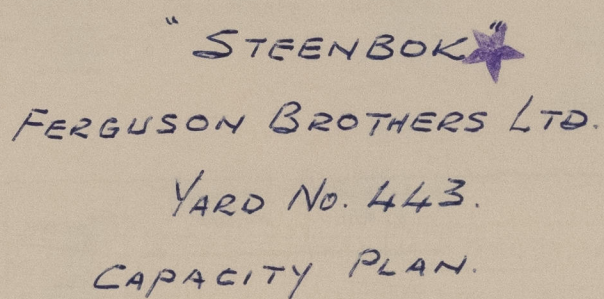 "STEENBOK"
FERGUSON BROTHERS LTD.
YARD No. 443.
CAPACITY PLAN.